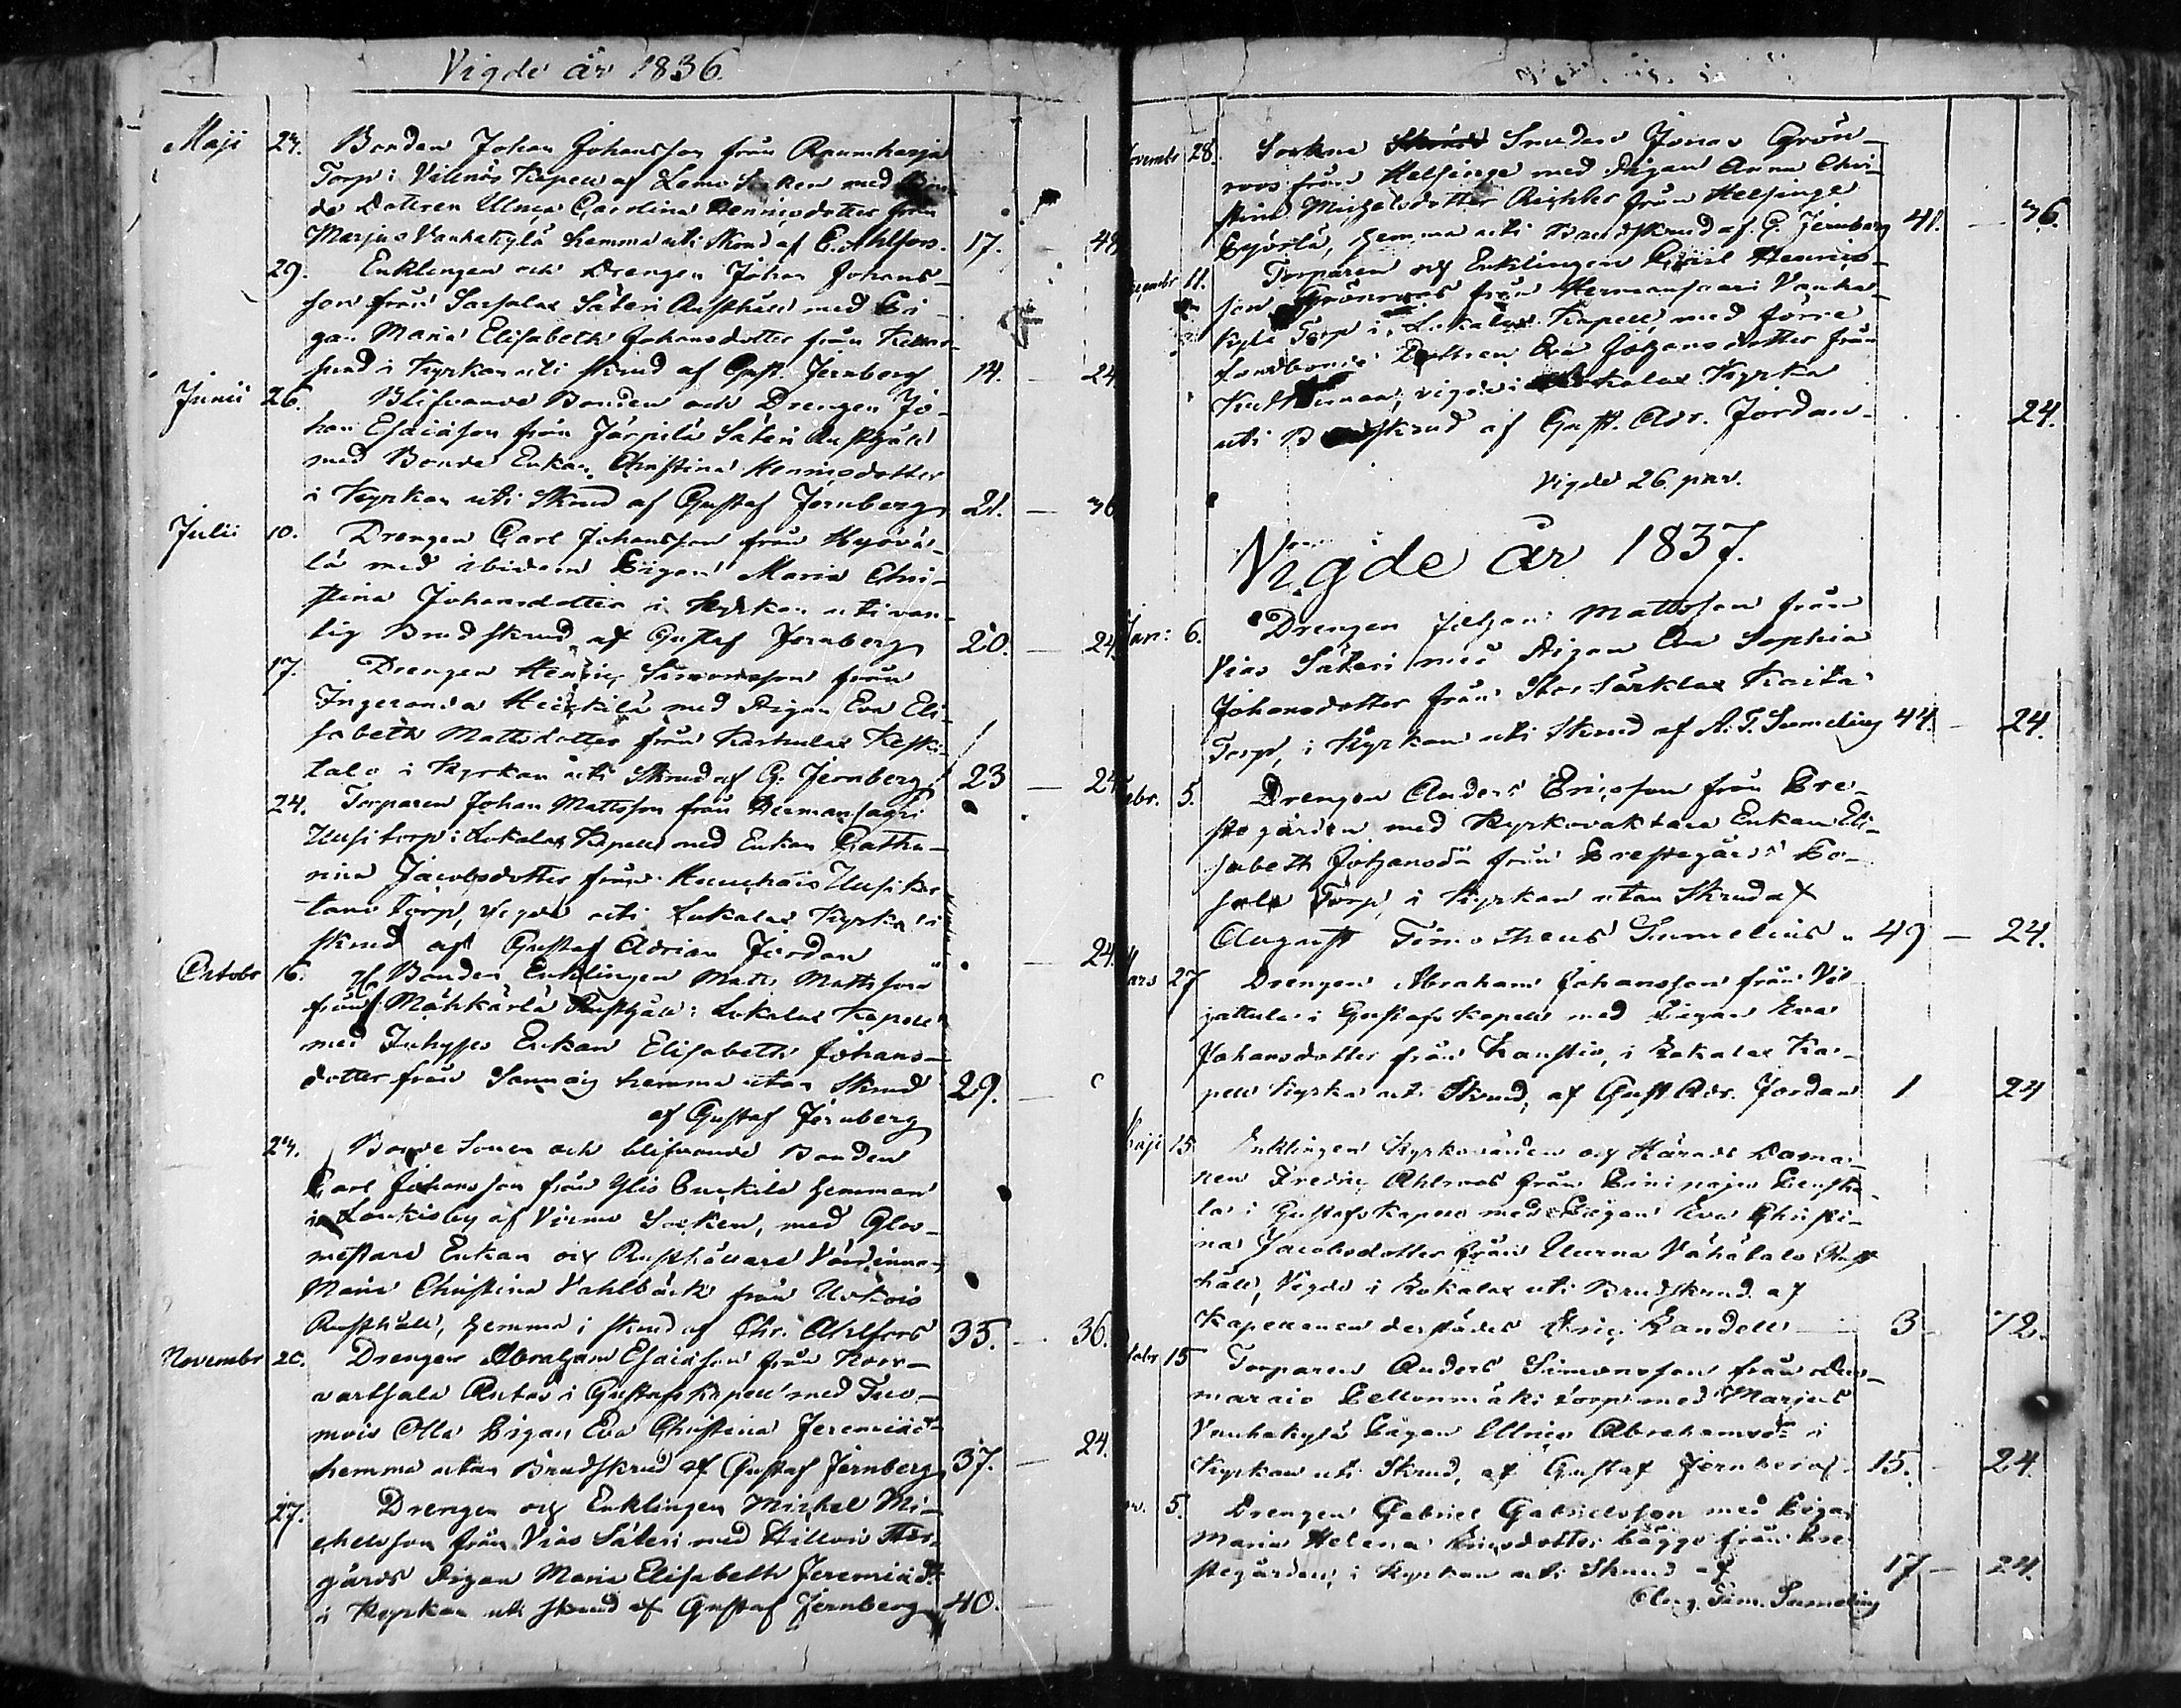 Vigde år 1836.
Maji 24. Bonden Johan Johansson från Raumkarja
Torp i Villnäs Kapell af Lemo Socken med Bon-
de Dottren Ulrica Carolina Henricsdotter från
Marjus Vanhakylä hemma uti skrud af C. Ahlfors. 17. — 48
29. Enklingen och Drengen Johan Johans-
son från Sarsalax Säteri Rusthåll med Pi-
gan Maria Elisabeth Johansdotter från
sund i Kyrkan uti skrud af Gust. Jernberg 14. — 24
Junii 26. Blifvande Bonden och Drengen Jo-
han Esaiasson från Järpilä Säteri Rusthåll
med Bonde Enkan Christina Henricsdotter
i Kyrkan uti Skrud af Gustaf Jernberg 21. — 36
Julii 10. Drengen Carl Johansson från Hyövä-
lä med ibidem Pigan Maria Chri-
stina Johansdotter i Kyrkan uti van-
lig Brudskrud af Gustaf Jernberg 20. — 24.
17. Drengen Henric Simonsson från
Ingeranda Heickilä med Pigan Eva Eli-
sabeth Mattsdotter från Karhulax Keski-
talo i Kyrkan uti Skrud af G. Jernberg 23 — 24
24. Torparen Johan Mattsson från Hermansaari
Uusitorp i Lokalax Kapell med Enkan Catha-
rina Jacobsdotter från Uusikar-
tano Torp, vigde uti Lokalax Kyrka i
skrud af Gustaf Adrian Jordan — 24.
Octobr 16. Bonden Enklingen Matts Mattsson
från Mähkärlä Rusthåll i Lokalax Kapell
med Inhyses Enkan Elisabeth Johans-
dotter från Sannäs hemma utan Skrud 29. —
af Gustaf Jernberg
24. Bonde Sonen och blifvande Bonden
Carl Johansson från Ylis hemman
i Loukisby af Virmo Socken, med Glas-
mästare Enkan och Rusthållare Värdinnan
Maria Christina Vahlbäck från Urkois
Rusthåll, hemma i skrud af Chr. Ahlfors 35. — 36.
Novembr 20. Drengen Abraham Esaiasson från Kor-
vartsala Antas i Gustafs Kapell med Tuo-
mois Olla Pigan Eva Christina Jeremiædr
hemma utan Brudskrud af Gustaf Jernberg 37. — 24.
27. Drengen och Enklingen Michel Mi-
chelsson från Vias Säteri med Hillois Her-
gårds Pigan Maria Elisabeth Jeremiædr
i Kyrkan uti skrud af Gustaf Jernberg 40. —
Novembr 28. Sockne Smeden Jonas Grön-
roos från Helsinge med Pigan Anna Chri-
stina Michelsdotter Richter från Helsinge
Työrlä, hemma uti Brudskrud af G. Jernberg 41. — 36.
Decembr 11. Torparen och Enklingen Carl Henrics-
son Grönroos från Hermansaari Vanha-
kylä Torp i Lokalax Kapell, med förre
Landbonde Dottren Eva Johansdotter från
vigde i Lokalax Kyrka
uti Brudskrud af Gust. Adr. Jordan. 24.
Vigde 26 par.
Vigde år 1837.
Jan: 6. Drengen Johan Mattsson från
Vias Säteri med Pigan Eva Sophia
Johansdotter från Stor Särklax Kaita
Torp, i Kyrkan uti Skrud af A. T. Sumelius 44. — 24.
Febr. 5. Drengen Anders Ericsson från Pre-
stegården med Kyrkovaktare Enkan Eli-
sabeth Johansdr från Prestegårds Po-
Torp, i Kyrkan utan Skrud af
August Timotheus Sumelius 49 — 24.
Mars 27 Drengen Abraham Johansson från Vil-
jattula i Gustafs Kapell med Pigan Eva
Johansdotter från Kaustio, i Lokalax Ka-
pell Kyrka uti Skrud, af Gust Adr. Jordan 1 24
Maji 15 Enklingen Kyrkovärden och Härads Doma-
ren Fredric Ahlroos från
la i Gustafs Kapell med Pigan Eva Christi-
na Jacobsdotter från Elurna Vähätalo Rust-
håll, Vigde i Lokalax uti Brudskrud af
Kapellanen derstädes Eric Zandell 3 — 72.
Octobr 15 Torparen Anders Simonsson från
marais Pellonmäki torp med Marjus
Vanhakylä Pigan Ulrica Abrahamsdr i
Kyrkan uti Skrud, af Gustaf Jernberg 15. — 24.
Nov. 5. Drengen Gabriel Gabrielsson med Pigan
Maria Helena Ericsdotter bägge från Pre-
stegården, i Kyrkan uti Skrud af 17 — 24.
Aug. Tim. Sumelius